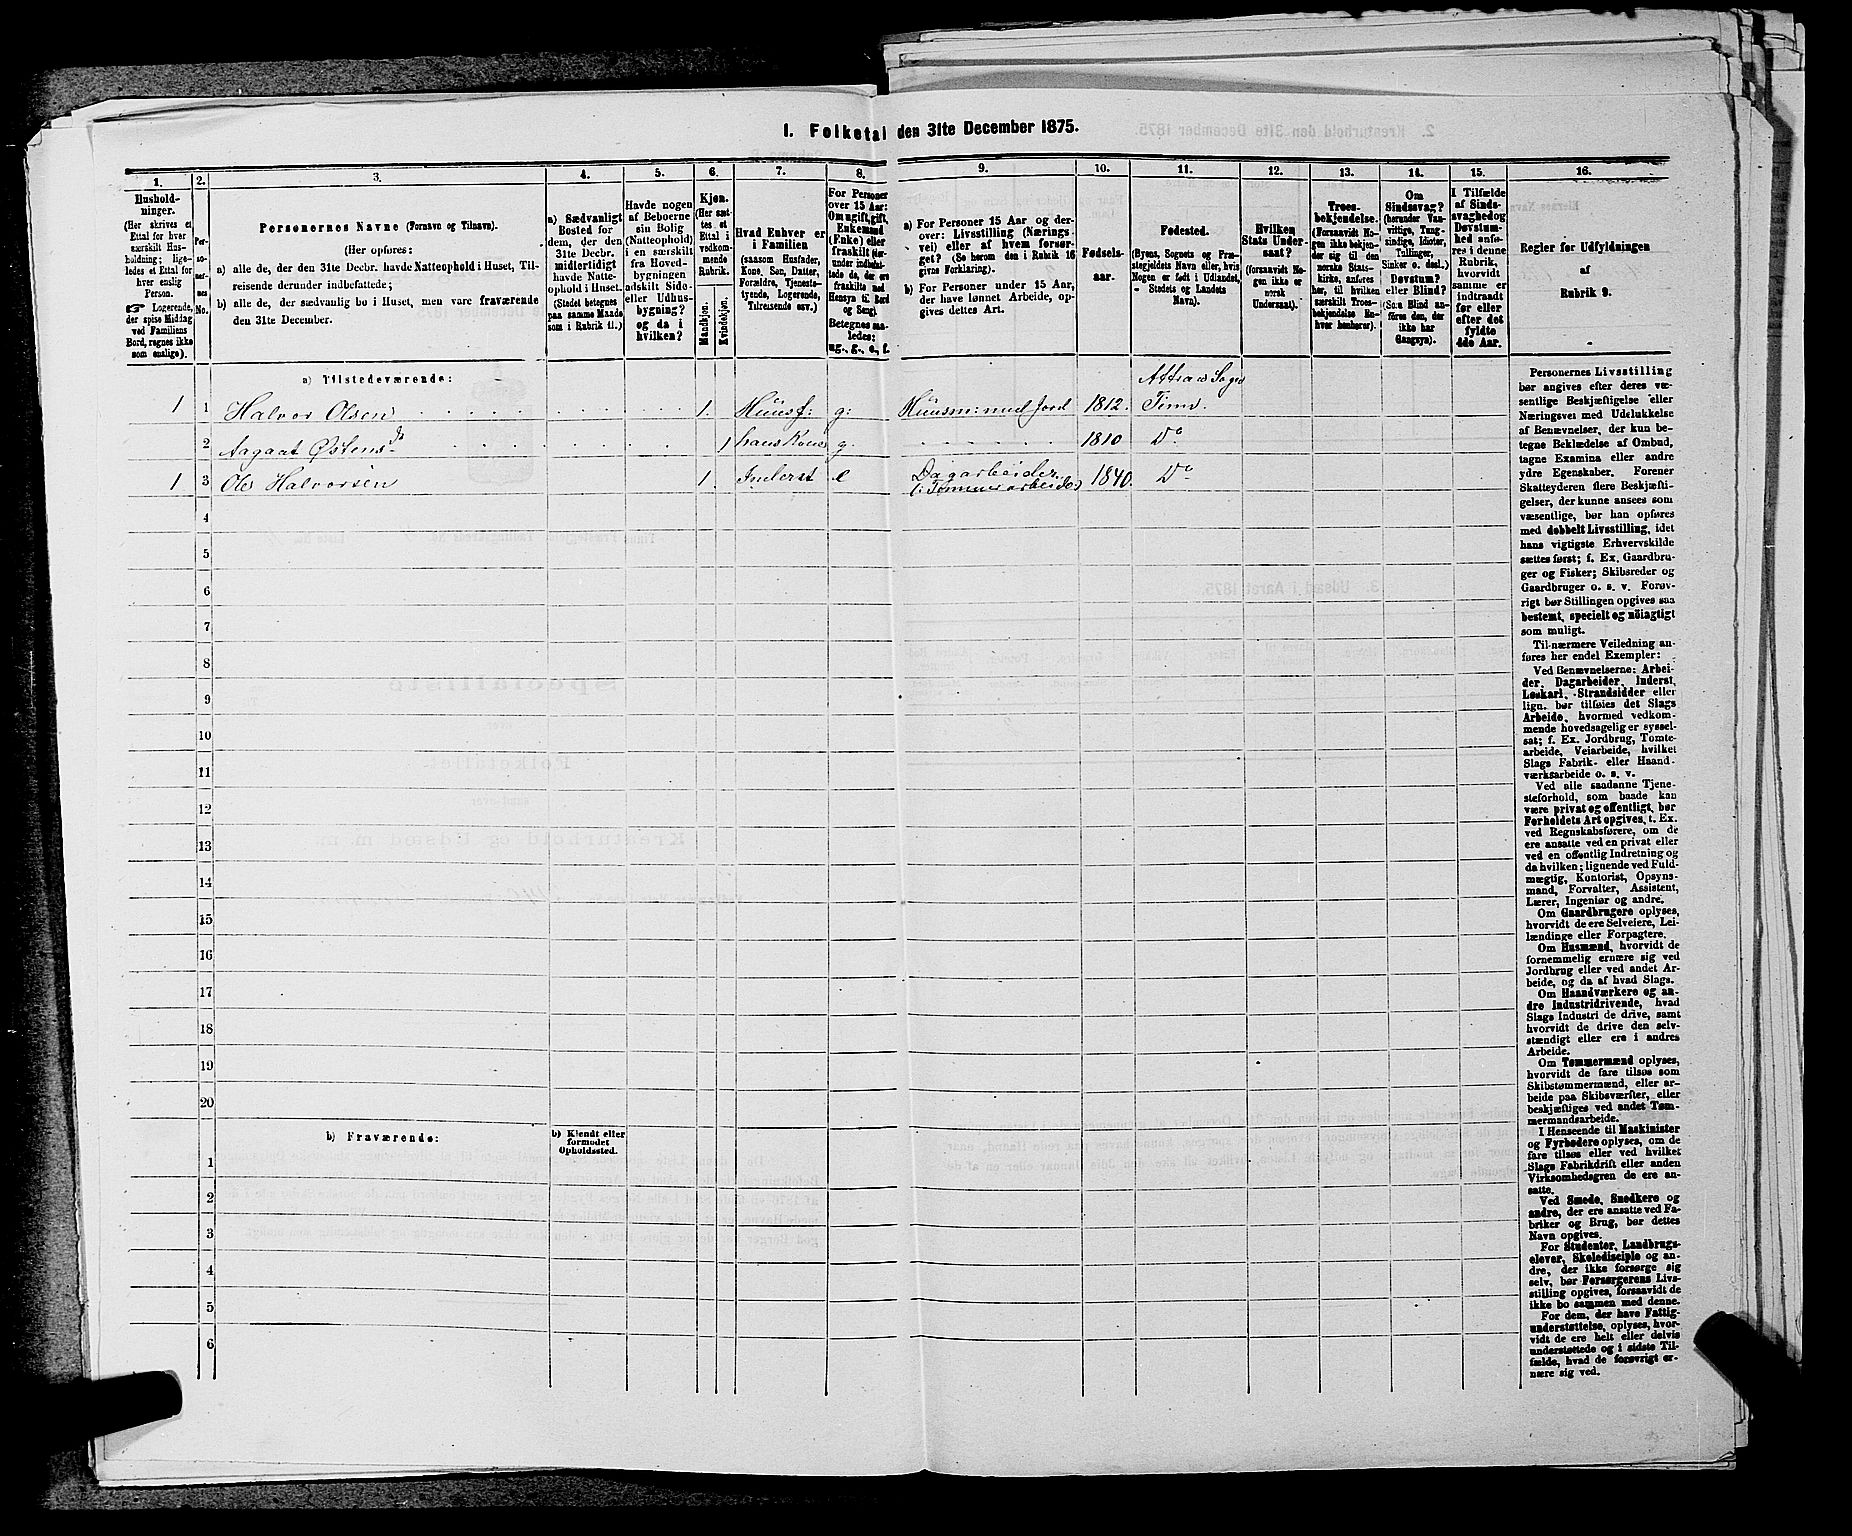 1. Folketal den 31te December 1875.
1.
2.
3.
4.
5.
6.
7.
8.
9.
10.
11.
12.
13.
14.
15.
16.
Hushold-
ninger.
(Her skrives et
Ettal for hver
særskilt Hus-
holdning; lige-
ledes et Ettal for
hver enslig
Person.
☞ Logerende,
der spise Middag
ved Familiens
Bord, regnes ikke
som enslige).
Per-
so-
ner-
nes
No.
Personernes Navne (Fornavn og Tilnavn).
(Her opføres:
a) alle de, der den 31te Decbr. havde Natteophold i Huset, Til-
reisende derunder indbefattede;
b) alle de, der sædvanlig bo i Huset, men vare fraværende
den 31te December.
a) Sædvanligt
Bosted for
dem, der den
31te Decbr.
midlertidigt
havde Natte-
ophold i Huset.
(Stedet betegnes
paa samme Maade
som i Rubrik 11.)
Havde nogen
af Beboerne
sin Bolig
(Natteophold)
i en særskilt
fra Hoved-
bygningen
adskilt Side-
eller Udhus-
bygning?
og da i
hvilken?
Kjøn.
(Her sæt-
tes et
Ettal i
vedkom-
mende
Rubrik.
Mandkjøn.
Kvindekjøn.
Hvad Enhver er
i Familien
(saasom Husfader,
Kone, Søn, Datter,
Forældre, Tjeneste-
tyende, Logerende,
Tilreisende osv.)
For Personer
over 15 Aar:
Om ugift, gift,
Enkemand
(Enke) eller
fraskilt (her-
under indbefat-
tede de, der ere
fraskilte med
Hensyn til Bord
og Seng).
Betegnes saa-
ledes:
ug., g., e., f.
a) For Personer 15 Aar og der-
over: Livsstilling (Nærings-
vei) eller af hvem forsør-
get? (Se herom den i Rubrik 16
givne Forklaring).
b) For Personer under 15 Aar,
der have lønnet Arbeide, op-
gives dettes Art.
Fødsels-
aar.
Fødested.
(Byens, Sognets og Præ-
stegjeldets Navn eller, hvis
Nogen er født i Udlandet,
Stedets og Landets
Navn).
Hvilken
Stats Under-
saat?
(forsaavidt No-
gen ikke er
norsk
Undersaat).
Troes-
bekjendelse.
(Forsaavidt No-
gen ikke bekjen-
der sig til den
norske Stats-
kirke, anføres
her, til hvilken
særskilt Troes-
bekjendelse En-
hver henhører).
Om
Sindssvag?
(herunder Van-
vittige, Tung-
sindige, Idioter,
Tullinger,
Sinker o. desl.)
Døvstum?
eller Blind?
(Som Blind an-
føres den, der
ikke har
Gangsyn).
I Tilfælde
af Sinds-
svaghed og
Døvstum-
hed anfø-
res i denne
Rubrik,
hvorvidt
samme er
indtraadt
før eller
efter det
fyldte
4de Aar.
Regler for Udfyldningen
af
Rubrik 9.
a) Tilstedeværende:
Attraa Sogn
1 1 Halvor Olsen 1. Huusf: g: Huusm: med Jord 1812. Tinn.
2 Aagaat Østensd 1 hans Kone g 1810 Do
1 3 Ole Halvorsen 1. Inderst e Dagarbeider 1840. Do
(: Tømmerarbeide:)
4
5
6
7
8
9
10
11
12
13
14
15
16
17
18
19
20
b) Fraværende:
b) Kjendt eller
formodet
Opholdssted.
1
2
3
4
5
6
Personernes Livsstilling
bør angives efter deres væ-
sentlige Beskjæftigelse eller
Næringsvei med Udelukkelse
af Benævnelser, der kun be-
tegne Beklædelse af Ombud,
tagne Examina eller andre
ydre Egenskaber. Forener
Skatteyderen flere Beskjæfti-
gelser, der kunne ansees som
væsentlige, bør han opføres
med dobbelt Livsstilling, idet
hans vigtigste Erhvervskilde
sættes først; f. Ex. Gaardbru-
ger og Fisker; Skibsreder og
Gaardbruger o. s. v. Forøv-
rigt bør Stillingen opgives saa
bestemt, specielt og nöiagtigt
som muligt.
Til nærmere Veiledning an-
føres her endel Exempler:
Ved Benævnelserne: Arbei-
der, Dagarbeider, Inderst,
Løskarl, Strandsidder eller
lign. bør tilføies det Slags
Arbeide, hvormed vedkom-
mende hovedsagelig er syssel-
sat; f. Ex. Jordbrug, Tomte-
arbeide, Veiarbeide, hvilket
Slags Fabrik- eller Haand-
værksarbeide o. s. v.
Ved alle saadanne Tjene-
steforhold, som baade kan
være privat og offentligt, bør
Forholdets Art opgives, t. Ex.
ved Regnskabsførere, om de
ere ansatte ved en privat eller
ved en offentlig Indretning og
da hvilken; lignende ved Fuld-
mægtig, Kontorist, Opsyns-
mand, Forvalter, Assistent,
Lærer, Ingeniør og andre.
Om Gaardbrugere oplyses,
hvorvidt de ere Selveiere, Lei-
lændinge eller Forpagtere.
Om Husmænd, hvorvidt de
fornemmelig ernære sig ved
Jordbrug eller ved andet Ar-
beide, og da af hvad Slags.
Om Haandværkere og an-
dre Industridrivende, hvad
Slags Industri de drive, samt
hvorvidt de drive den selv-
stændigt eller ere i andres
Arbeide.
Om Tømmermænd oplyses,
hvorvidt de fare tilsøs som
Skibstømmermænd, eller ar-
beide paa Skibsværfter, eller
beskjæftiges ved andet Tøm-
mermandsarbeide.
I Henseende til Maskinister
og Fyrbødere oplyses, om de
fare tilsøs eller ved hvilket
Slags Fabrikdrift eller anden
Virksomhedsgren de ere an-
satte.
Ved Smede, Snedkere og
andre, der ere ansatte ved Fa-
briker og Brug, bør dettes
Navn opgives.
For Studenter, Landbrugs-
elever, Skoledisciple og an-
dre, der ikke forsørge sig
selv, bør Forsørgerens Livs-
stilling opgives, forsaavidt de
ikke bo sammen med denne.
For dem, der have Fattig-
understøttelse, oplyses, hvor-
vidt de ere helt eller delvis
understøttede og i sidste Til-
fælde, hvad de forøvrigt er-
nære sig ved.